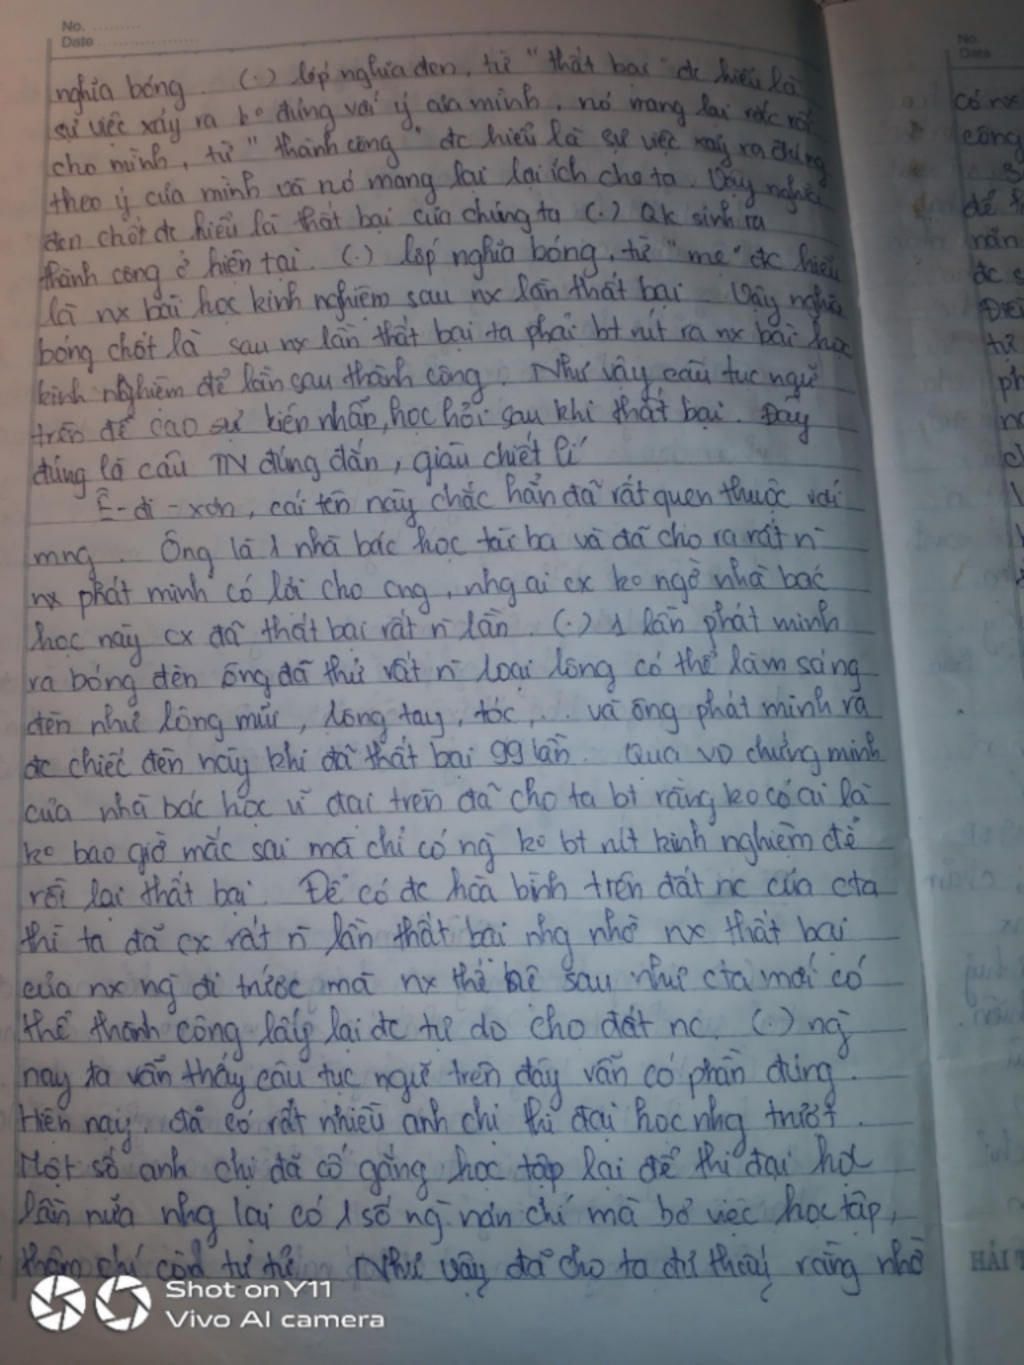 No.
Date
nghĩa bóng. (.) lớp nghĩa đen, từ "thất bại" đc hiểu là
sự việc xảy ra ko đúng với ý của mình, nó mang lại rắc rối
cho mình, từ "thành công" đc hiểu là sự việc xảy ra đúng
theo ý của mình và nó mang lại lợi ích cho ta. Vậy nghĩa
đen chốt đc hiểu là thất bại của chúng ta (.) Qk sinh ra
thành công ở hiện tại. (.) lớp nghĩa bóng, từ "mẹ" đc hiểu
là nx bài học kinh nghiệm sau nx lần thất bại. Vậy nghĩa
bóng chốt là sau nx lần thất bại ta phải bt rút ra nx bài học
kinh nghiệm để lần sau thành công. Như vậy câu tục ngữ
trên đề cao sự kiên nhẫn, học hỏi sau khi thất bại. Đây
đúng là câu TN đúng đắn, giàu chiết lí
Ê-đi-xơn, cái tên này chắc hẳn đã rất quen thuộc với
mng. Ông là 1 nhà bác học tài ba và đã cho ra rất n̄
nx phát minh có lời cho cng, nhg ai cx ko ngờ nhà bác
học này cx đã thất bại rất n̄ lần. (.) 1 lần phát minh
ra bóng đèn ông đã thử rất n̄ loại lông có thể làm sáng
đèn như lông mũi, lông tay, tóc,... và ông phát minh ra
đc chiếc đèn này khi đã thất bại 99 lần. Qua VD chứng minh
của nhà bác học vĩ đại trên đã cho ta bt rằng ko có ai là
ko bao giờ mắc sai mà chỉ có ng̀ ko bt rút kinh nghiệm để
rồi lại thất bại. Để có đc hòa bình trên đất nc của cta
thì ta đã cx rất n̄ lần thất bại nhg nhờ nx thất bại
của nx ng̀ đi trước mà nx thế hệ sau như cta mới có
thể thành công lấy lại đc tự do cho đất nc. (.) ng̀
nay ta vẫn thấy câu tục ngữ trên đây vẫn có phần đúng.
Hiện nay, đã có rất nhiều anh chị thi đại học nhg trượt.
Một số anh chị đã cố gắng học tập lại để thi đại học
lần nữa nhg lại có 1 số ng̀ nản chí mà bỏ việc học tập,
thậm chí còn tự tử. Như vậy đã cho ta thấy rằng nhờ
No.
Date
có nx
công
để
nản
đc s
từ
ph
HẢI
Shot on Y11
Vivo AI camera